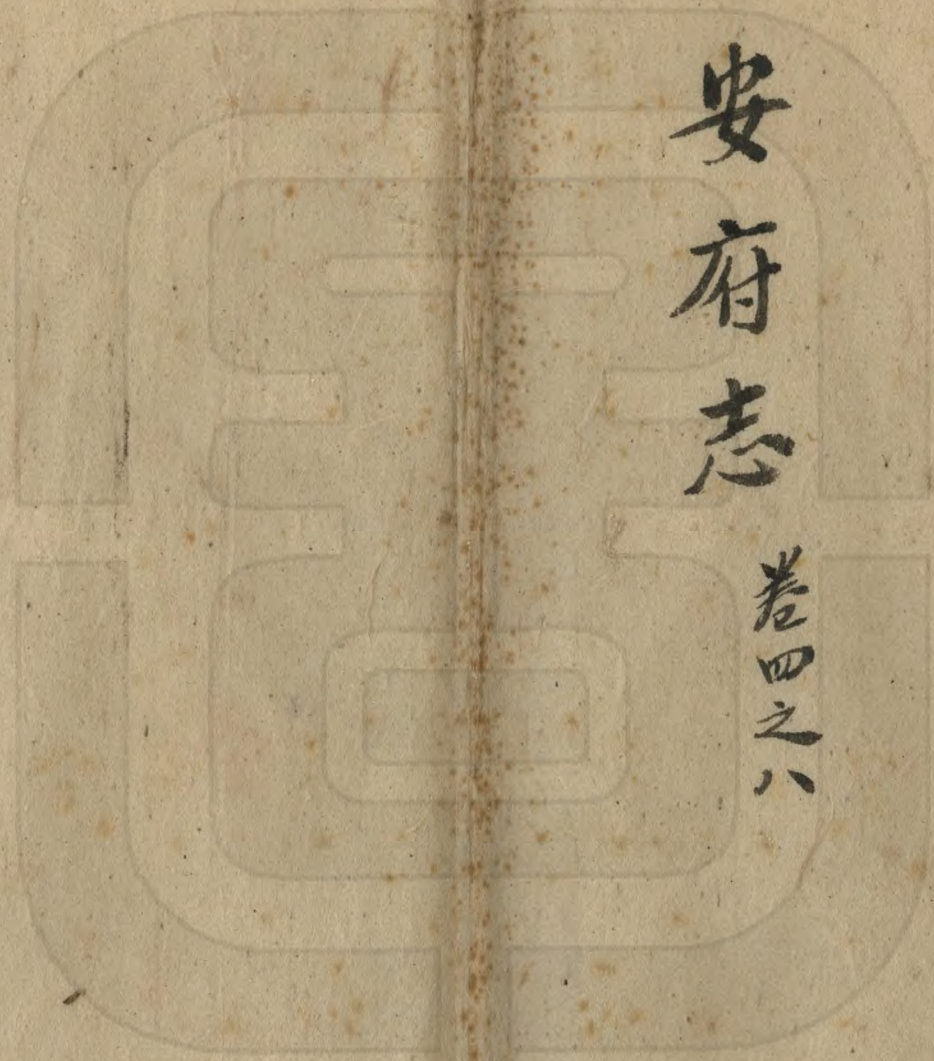 安府志 卷四之八